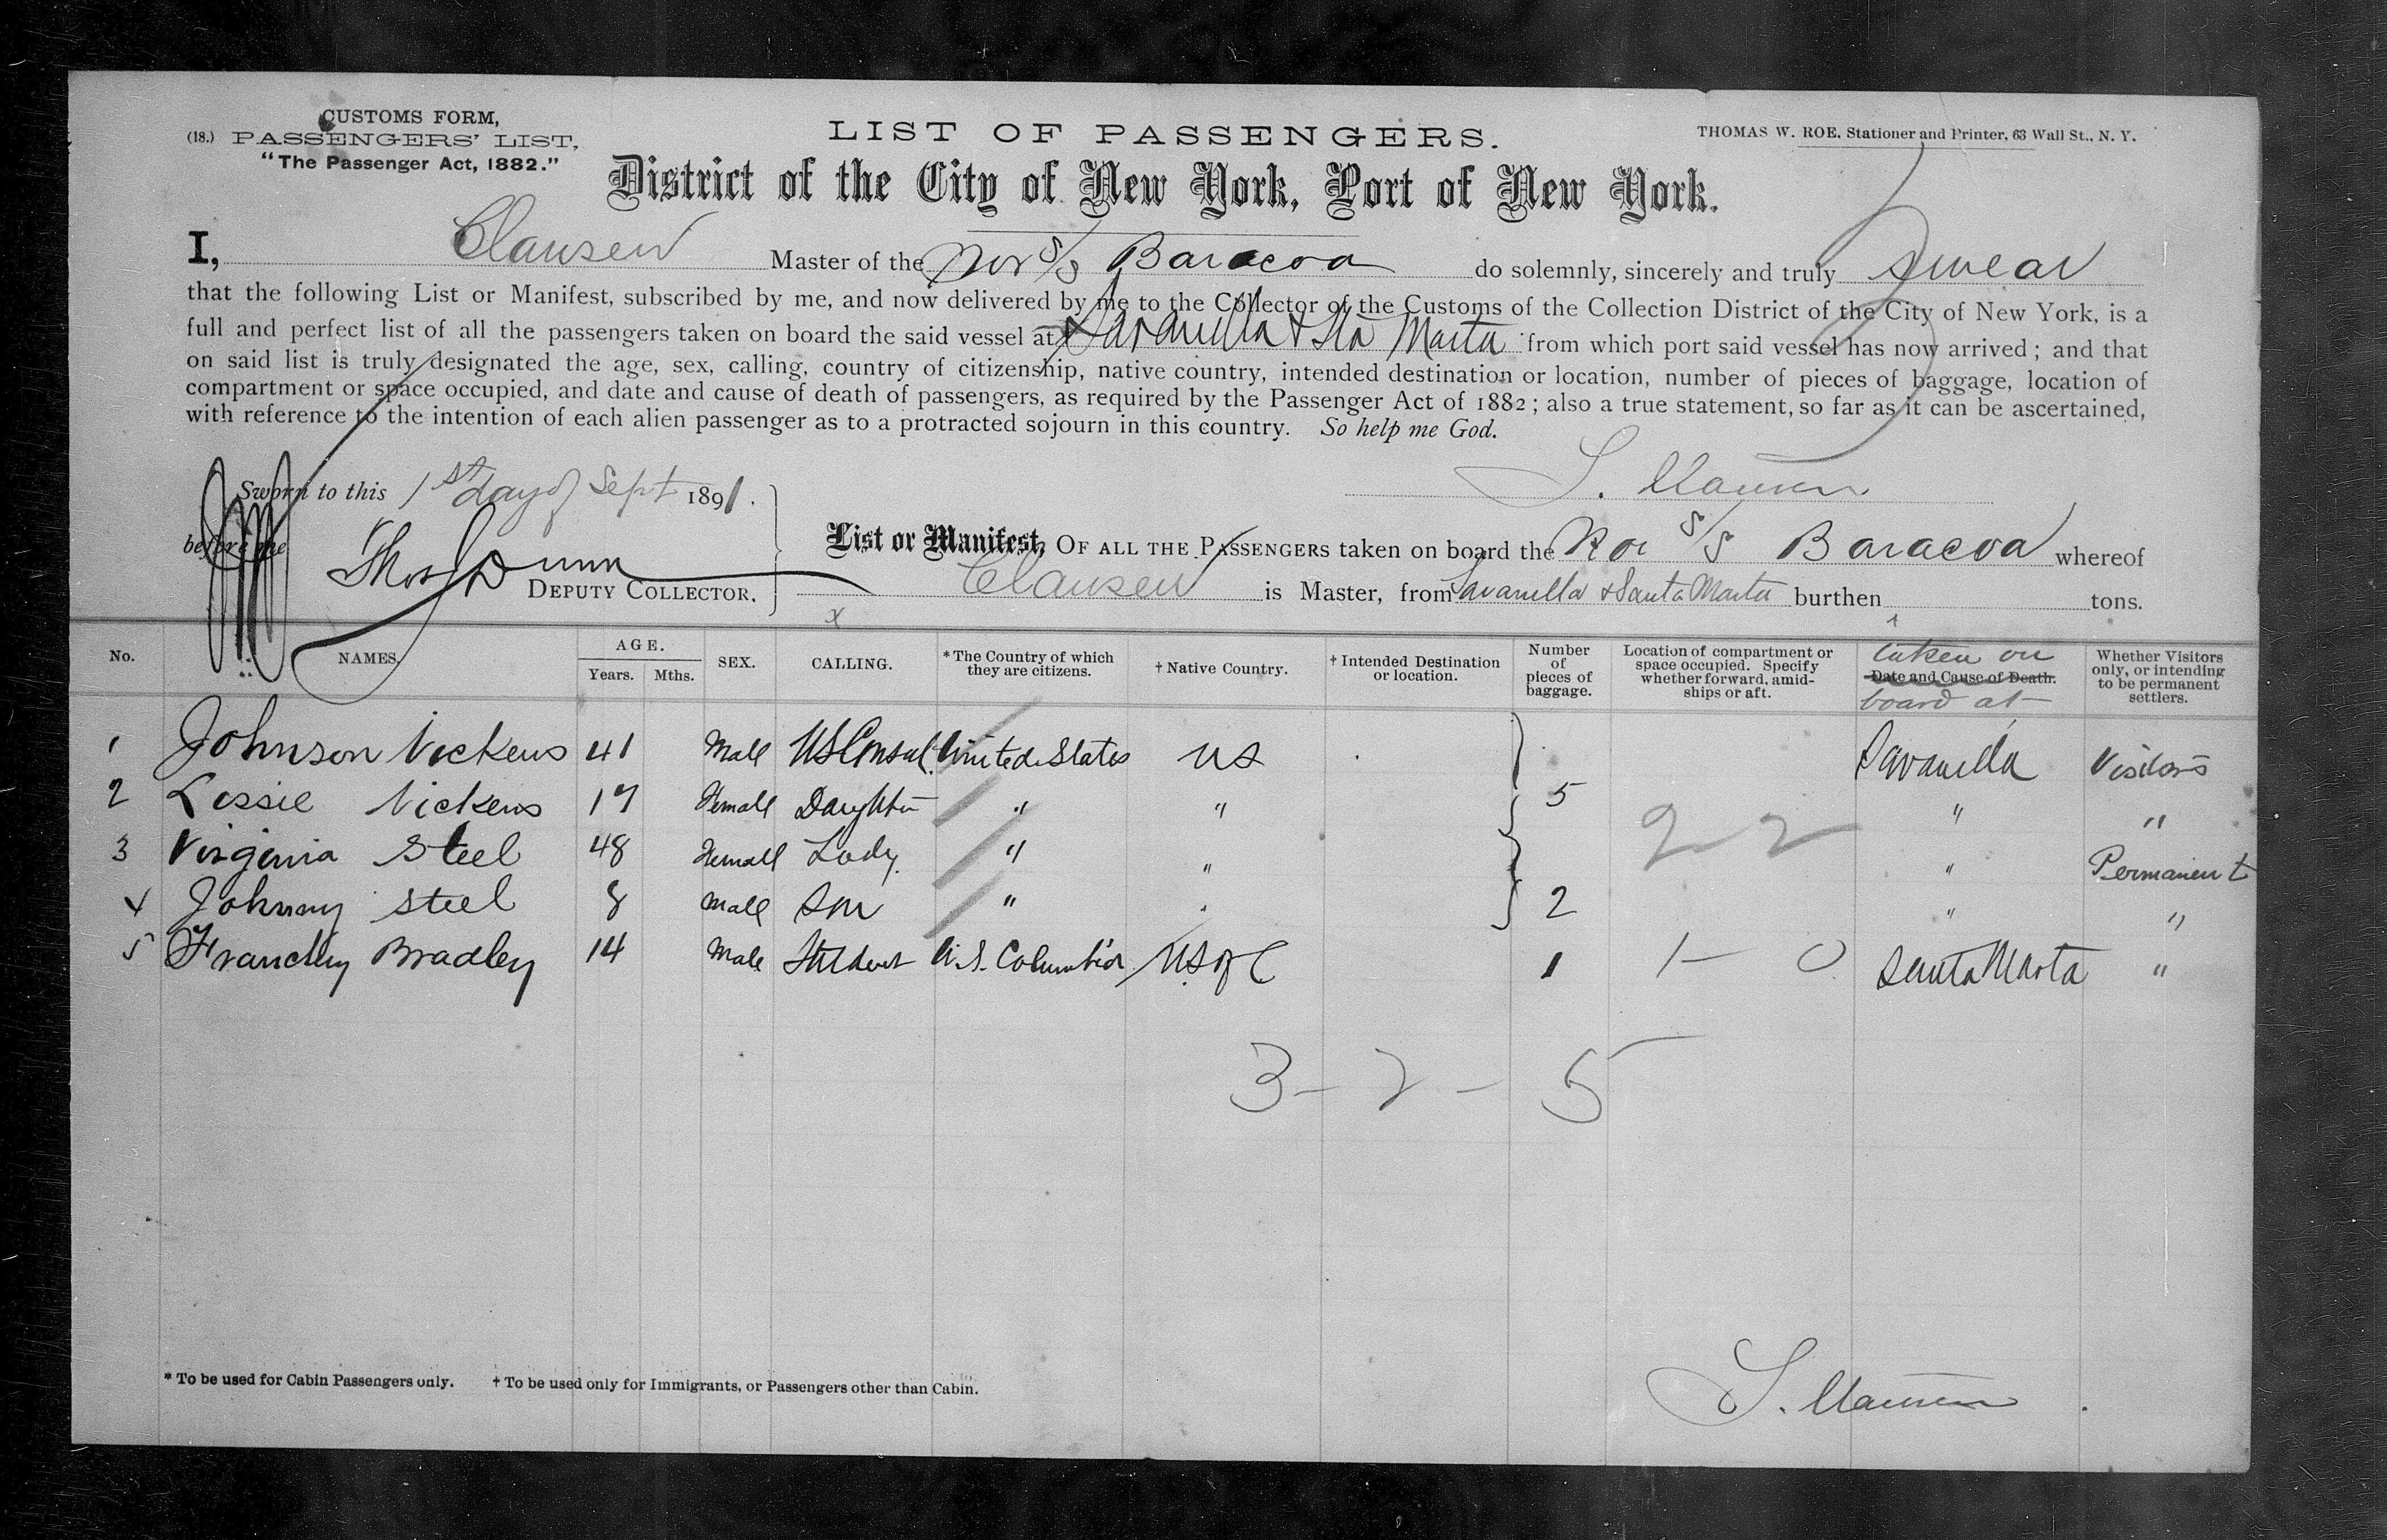 CUSTOMS FORM,
(18.) PASSENGERS' LIST,
"The Passenger Act, 1882."
LIST OF PASSENGERS.
THOMAS W. ROE, Stationer and Printer, 63 Wall St., N. Y.
District of the City of New York, Port of New York.
I, Clausen Master of the Nor S/S Baracoa do solemnly, sincerely and truly swear
that the following List or Manifest, subscribed by me, and now delivered by me to the Collector of the Customs of the Collection District of the City of New York, is a
full and perfect list of all the passengers taken on board the said vessel at Savanilla & Sta Marta from which port said vessel has now arrived; and that
on said list is truly designated the age, sex, calling, country of citizenship, native country, intended destination or location, number of pieces of baggage, location of
compartment or space occupied, and date and cause of death of passengers, as required by the Passenger Act of 1882; also a true statement, so far as it can be ascertained,
with reference to the intention of each alien passenger as to a protracted sojourn in this country. So help me God.
Sworn to this 1st day of Sept 1891.
S. Clausen
before me
Thos Dunn
DEPUTY COLLECTOR.
List or Manifest, OF ALL THE PASSENGERS taken on board the Nor S/S Baracoa whereof
Clausen is Master, from Savanilla & Santa Marta burthen tons.
x
No. NAMES. AGE. Years. Mths. SEX. CALLING. *The Country of which they are citizens. †Native Country. †Intended Destination or location. Number of pieces of baggage. Location of compartment or space occupied. Specify whether forward, amidships or aft. Date and Cause of Death. taken on board at Whether Visitors only, or intending to be permanent settlers.
1 Johnson Vickens 41 Male US Consul. United States US Savanilla Visitors
2 Lessie Vickens 17 Female Daughter " " 5 " "
3 Virginia Steel 48 Female Lady. " " 2 2 " Permanent
4 Johnny Steel 8 Male Son " 2 " "
5 Bradley 14 Male Student U.S. Columbia US of C 1 1 - 0 Santa Marta "
3 - 2 - 5
* To be used for Cabin Passengers only. † To be used only for Immigrants, or Passengers other than Cabin.
S. Clausen